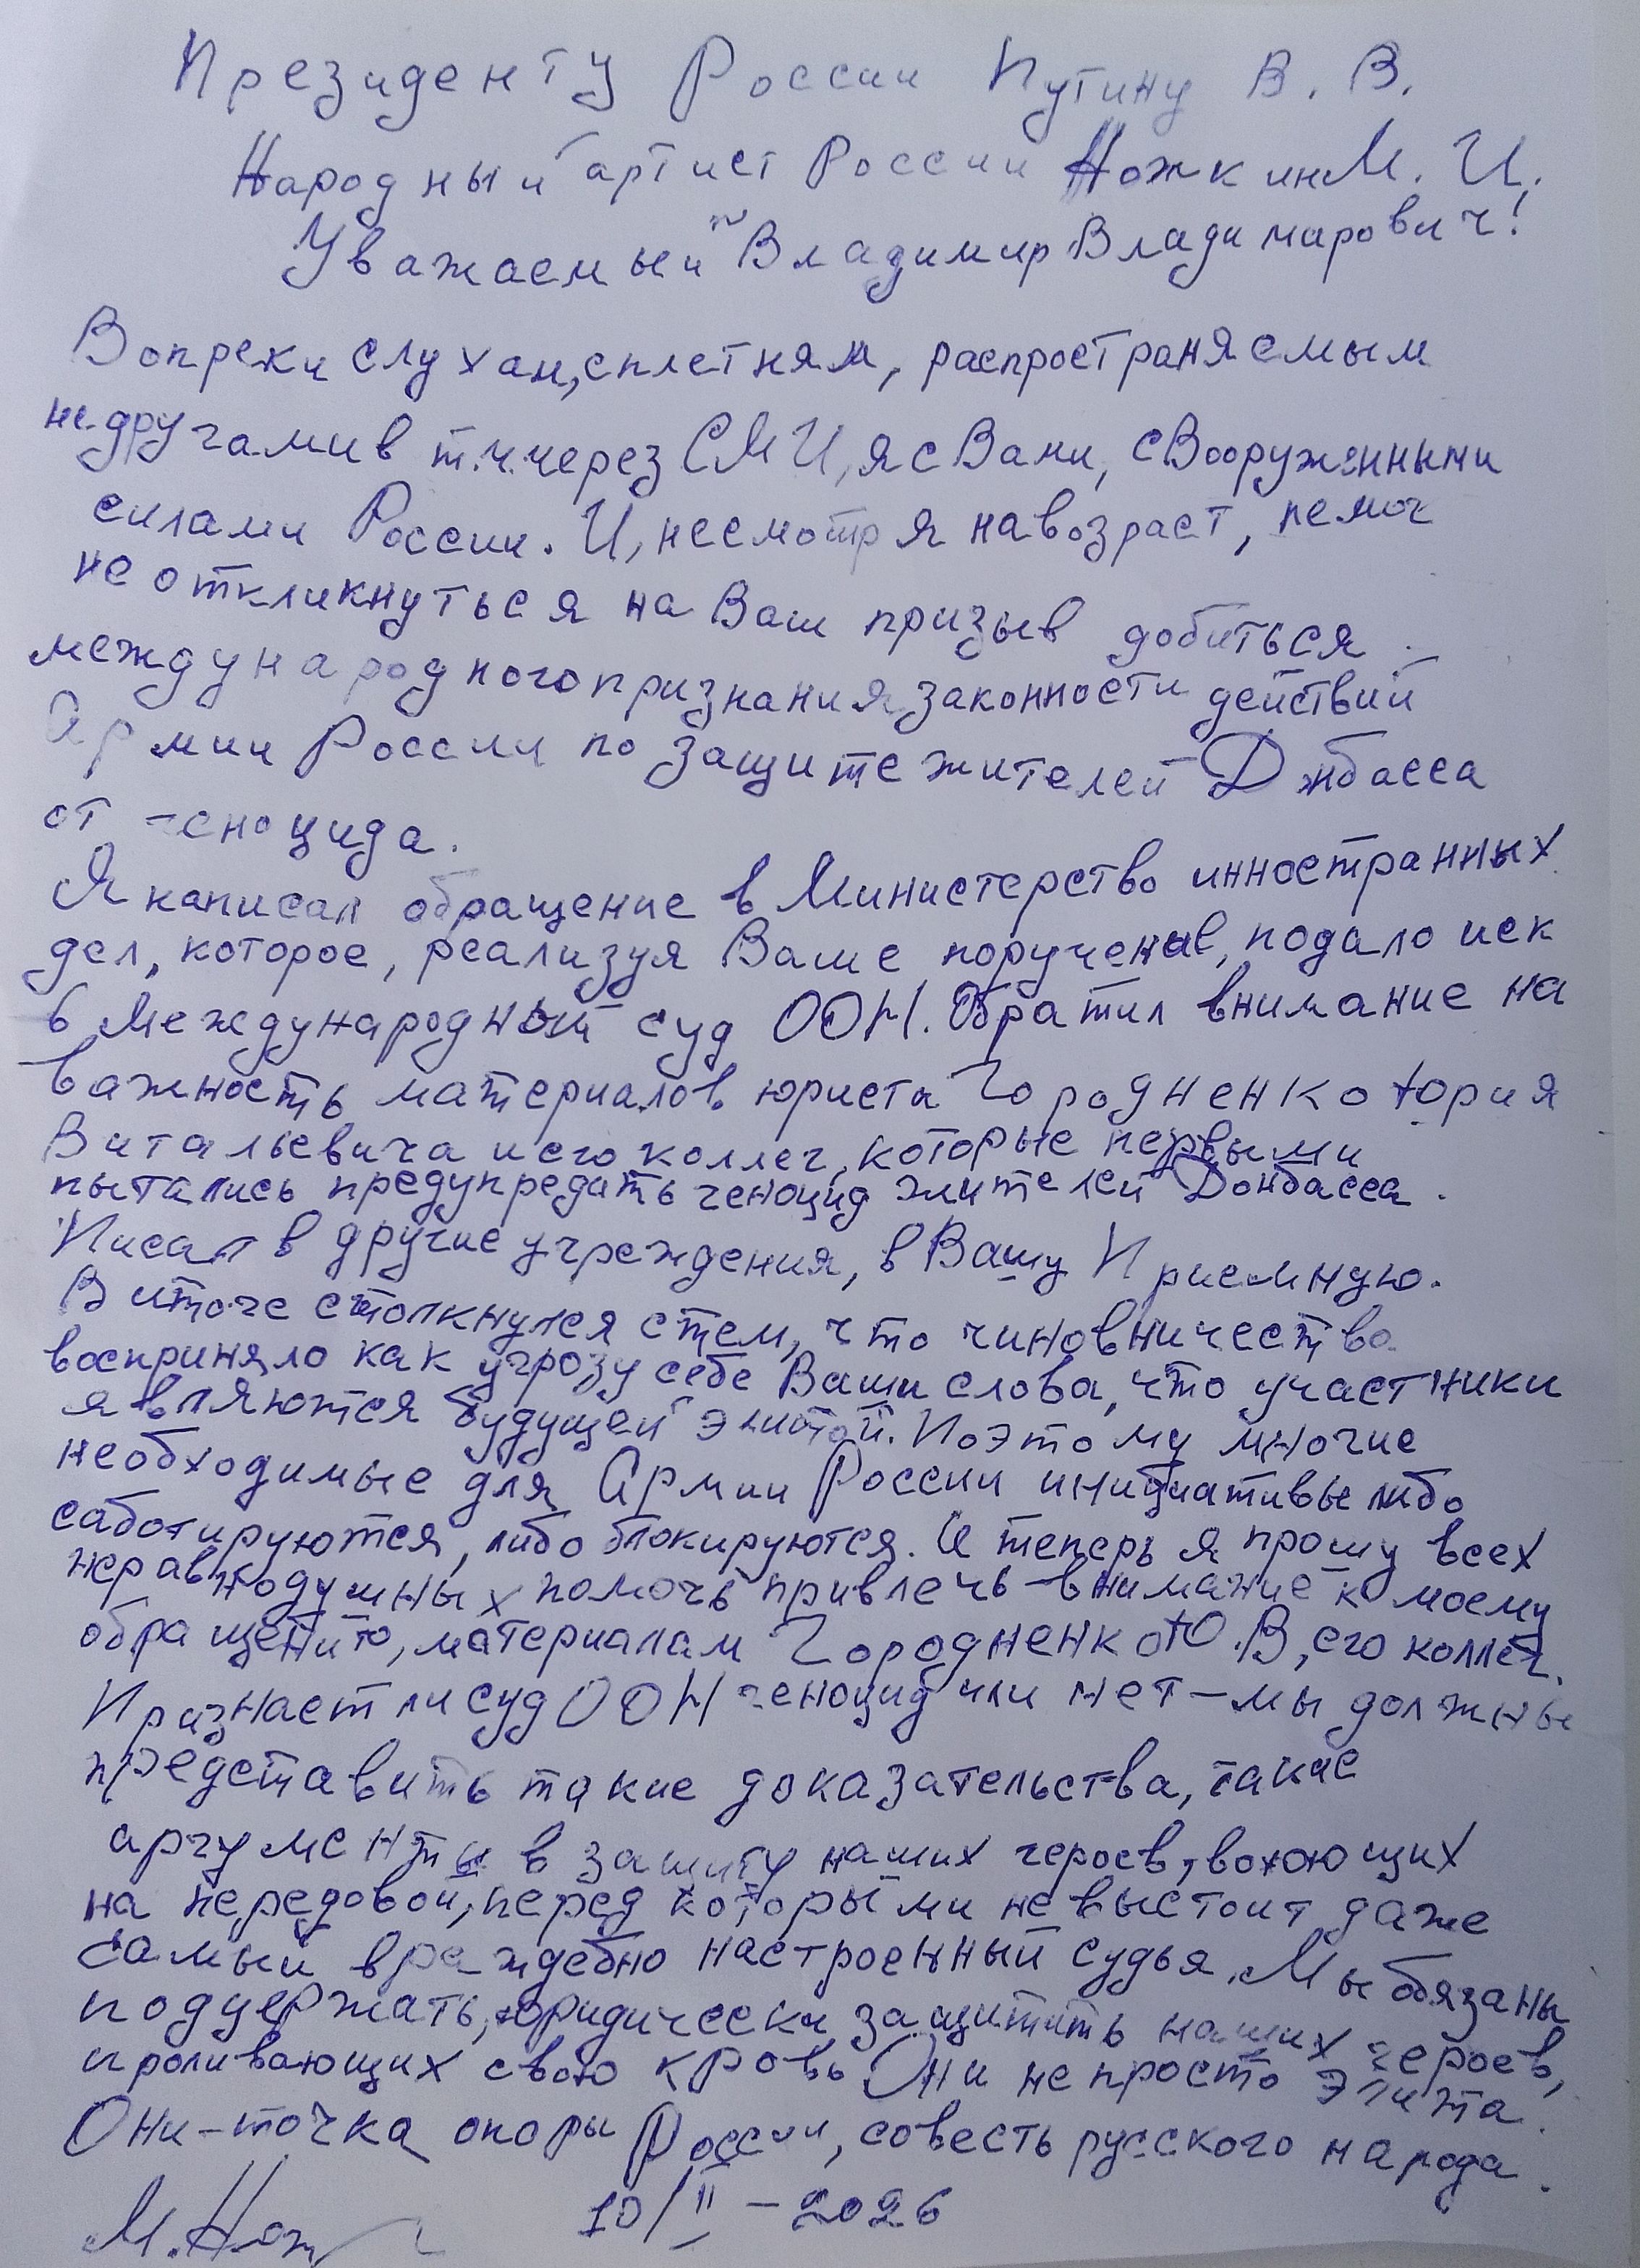 Президенту России Путину В. В.
Народный артист России Ножкин М. И.
Уважаемый Владимир Владимирович!
Вопреки слухам, сплетням, распространяемым
недругами в т.ч. через СМИ, я с Вами, с Вооруженными
силами России. И, несмотря на возраст, не мог
не откликнуться на Ваш призыв добиться
международного признания законности действий
Армии России по защите жителей Донбасса
от геноцида.
Я написал обращение в Министерство инностранных
дел, которое, реализуя Ваше поручение, подало иск
в Международный суд ООН. Обратил внимание на
важность материалов юриста Городненко Юрия
Витальевича и его коллег, которые первыми
пытались предупредить геноцид жителей Донбасса.
Писал в другие учреждения, в Вашу Приемную.
В итоге столкнулся с тем, что чиновничество
восприняло как угрозу себе Ваши слова, что участники
являются будущей элитой. Поэтому многие
необходимые для Армии России инициативы либо
саботируются, либо блокируются. И теперь я прошу всех
неравнодушных помочь привлечь внимание к моему
обращению, материалам Городненко Ю.В, его коллег.
Признает ли суд ООН геноцид или нет – мы должны
представить такие доказательства, такие
аргументы в защиту наших героев, воюющих
на передовой, перед которыми не выстоит даже
самый враждебно настроенный судья. Мы обязаны
поддержать, юридически защитить наших героев,
проливающих свою кровь. Они не просто элита.
Они – точка опоры России, совесть русского народа.
М. Нож 10/II – 2026